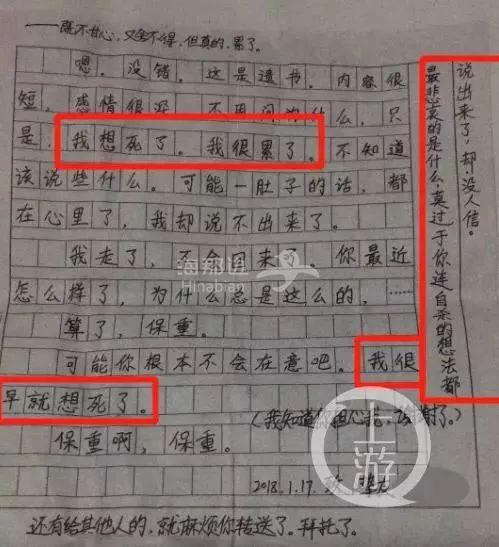 ——既不甘心，又舍不得，但真的，累了。
嗯。没错。这是遗书。内容很
短，感情很深，不要问为什么，只
是，我想死了。我很累了。不知道
该说些什么。可能一肚子的话，都
在心里了，我却说不出来了。
我走了，不会回来了。你最近
怎么样了，为什么总是这么的，……
算了，保重。
可能你根本不会在意吧。我很
早就想死了。
(我知道你担心我，谢谢了。)
保重啊，保重。
2018.1.17.
还有给其他人的，就麻烦你转送了。拜托了。
最悲哀的是什么，莫过于你连自杀的想法都
说出来了，却没人信。
海那边
Hinabian
上游